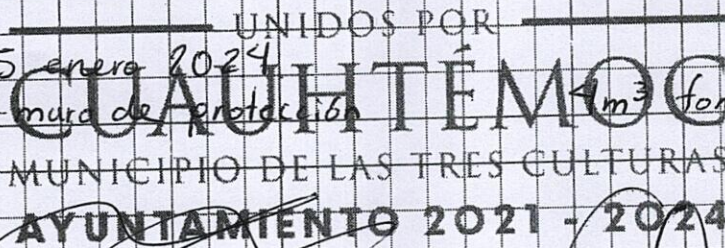 UNIDOS POR
5 enero 2024
CUAUHTÉMOC
muro de protección 4m³ for
MUNICIPIO DE LAS TRES CULTURAS
AYUNTAMIENTO 2021 - 2024